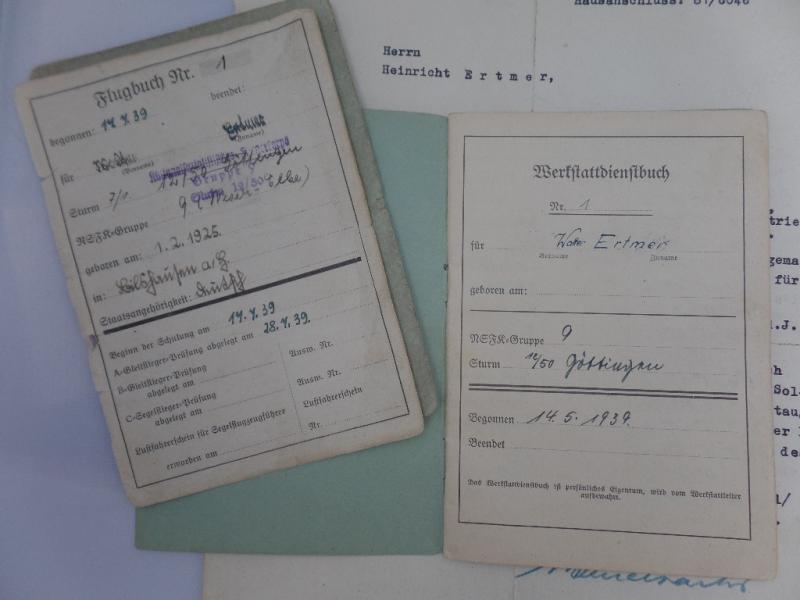 Hausanschluss: 87/6046
Herrn
Heinricht Ertmer,
Flugbuch Nr. 1
begonnen: 17.7.39 beendet:
für
(Vorname) (Zuname)
Sturm 7/1. 12/50 Göttingen
NSFK-Gruppe 9 (Weser-Elbe)
geboren am: 1.2.1925.
in: Bilshausen a/H.
Staatsangehörigkeit: deutsch
Beginn der Schulung am 17.7.39
A-Gleitflieger-Prüfung abgelegt am 28.7.39.
B-Gleitflieger-Prüfung
abgelegt am Ausw. Nr.
C-Segelflieger-Prüfung
abgelegt am Ausw. Nr.
Luftfahrerschein für Segelflugzeugführer Luftfahrerschein
erworben am Nr.
Werkstattdienstbuch
Nr. 1
für Walter Ertmer
Vorname Zuname
geboren am:
NSFK-Gruppe 9
Sturm 12/50 Göttingen
Begonnen 14.5.1939.
Beendet
Das Werkstattdienstbuch ist persönliches Eigentum, wird vom Werkstattleiter
aufbewahrt.
trie
gema
für
.J.
h
Sol-
tau,
er
de